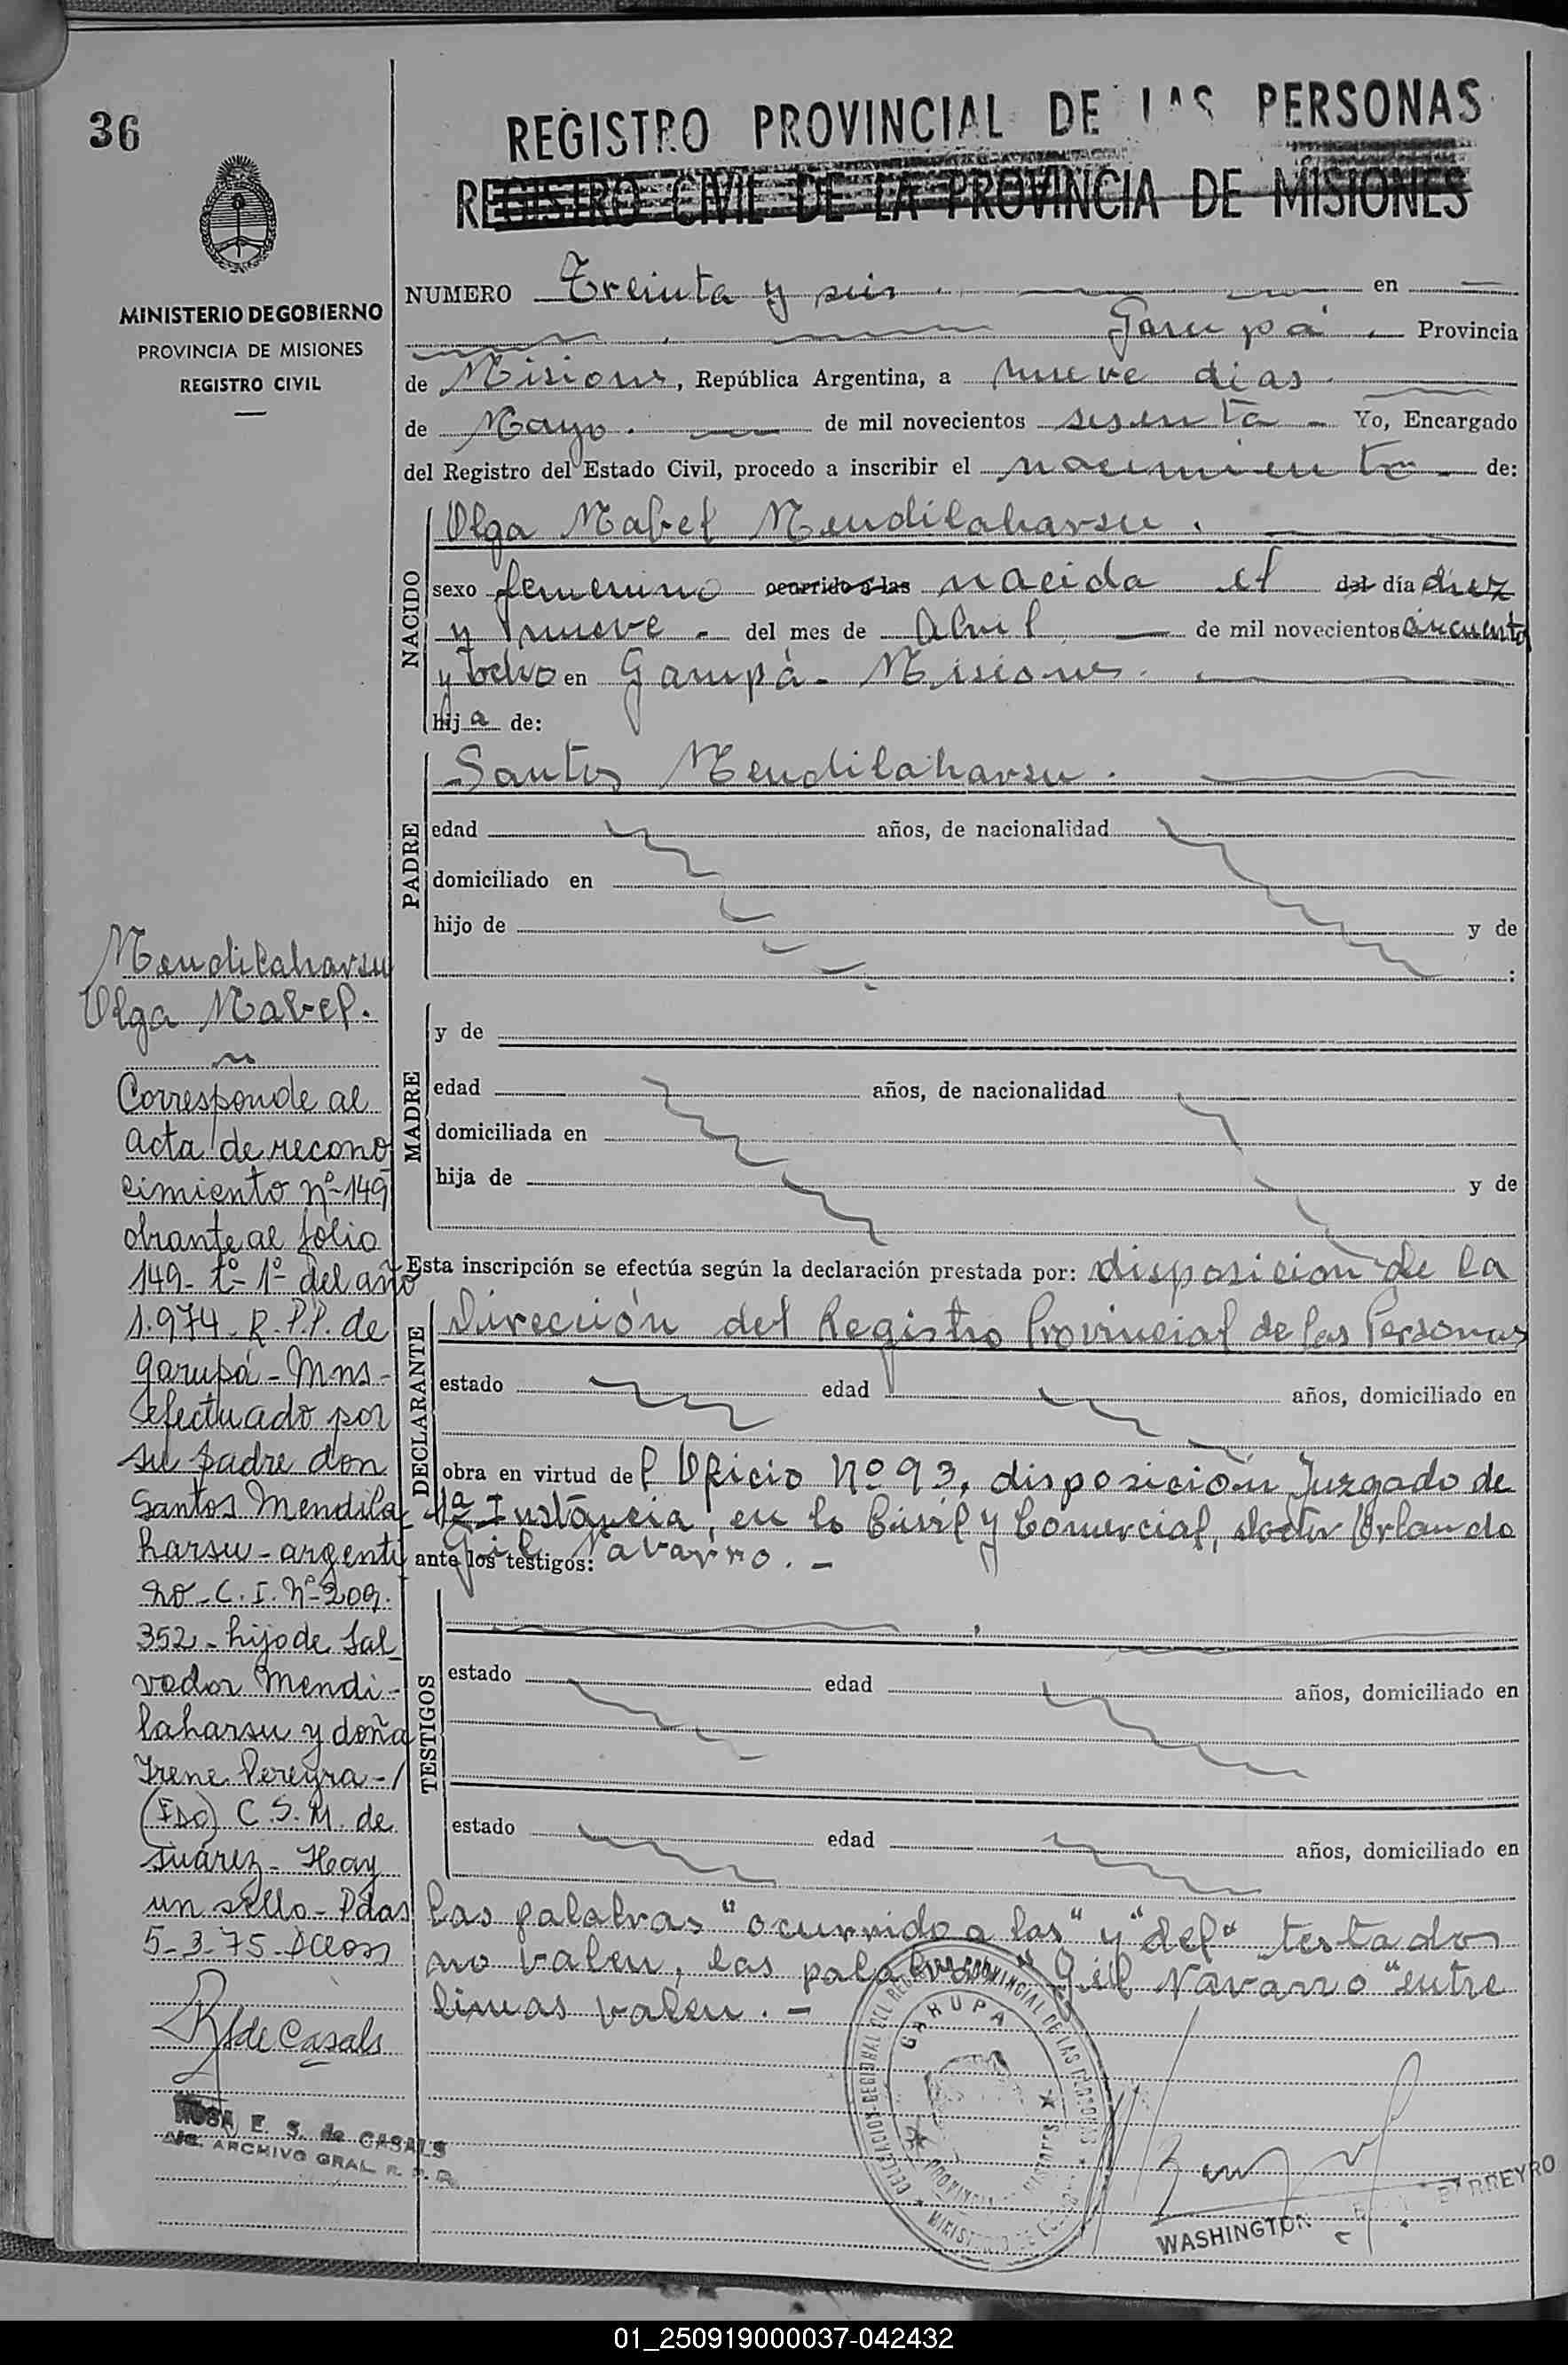 36
REGISTRO PROVINCIAL DE LAS PERSONAS
REGISTRO CIVIL DE LA PROVINCIA DE MISIONES
MINISTERIO DE GOBIERNO
PROVINCIA DE MISIONES
REGISTRO CIVIL
NUMERO Treinta y seis. en
Garupá. Provincia
de Misiones, República Argentina, a nueve dias.
de Mayo. de mil novecientos sesenta - Yo, Encargado
del Registro del Estado Civil, procedo a inscribir el nacimiento - de:
NACIDO
Olga Mabel Mendilaharsu.
sexo femenino ocurrido a las nacida el del día diez
y nueve - del mes de Abril de mil novecientos cincuenta
y ocho en Garupá - Misiones.
hij a de:
PADRE
Santos Mendilaharsu.
edad años, de nacionalidad
domiciliado en
hijo de y de
:
MADRE
y de
edad años, de nacionalidad
domiciliada en
hija de y de
Esta inscripción se efectúa según la declaración prestada por: disposición de la
DECLARANTE
Dirección del Registro Provincial de las Personas
estado edad años, domiciliado en
obra en virtud del Oficio Nº 93, disposición Juzgado de
1ª Instancia, en lo Civil y Comercial, doctor Orlando
Gil Navarro. -
ante los testigos:
TESTIGOS
estado edad años, domiciliado en
estado edad años, domiciliado en
las palabras "ocurrido a las" y "del" testado
no valen, las palabras "Gil Navarro" entre
lineas valen. -
Mendilaharsu
Olga Mabel.
Corresponde al
acta de recono
cimiento nº-149
obrante al folio
149- tº- 1º- del año
1.974- R.P.P. de
Garupá - Mns -
efectuado por
su padre don
Santos Mendila
harsu - argenti
no - C.I. Nº-209.
352 - hijo de Sal
vador Mendi-
laharsu y doña
Irene Pereyra - /
(Fdo) C. S. M. de
Suárez - Hay
un sello - Pdas
5-3-75-
R S de Casals
ROSA E. S. de CASALS
ARCHIVO GRAL. R. P. P.
DELEGACION REGIONAL DEL REGISTRO PROVINCIAL DE LAS PERSONAS
GARUPA
PROVINCIA DE MISIONES
MINISTERIO DE GOBIERNO
WASHINGTON BARREYRO
01_250919000037-042432